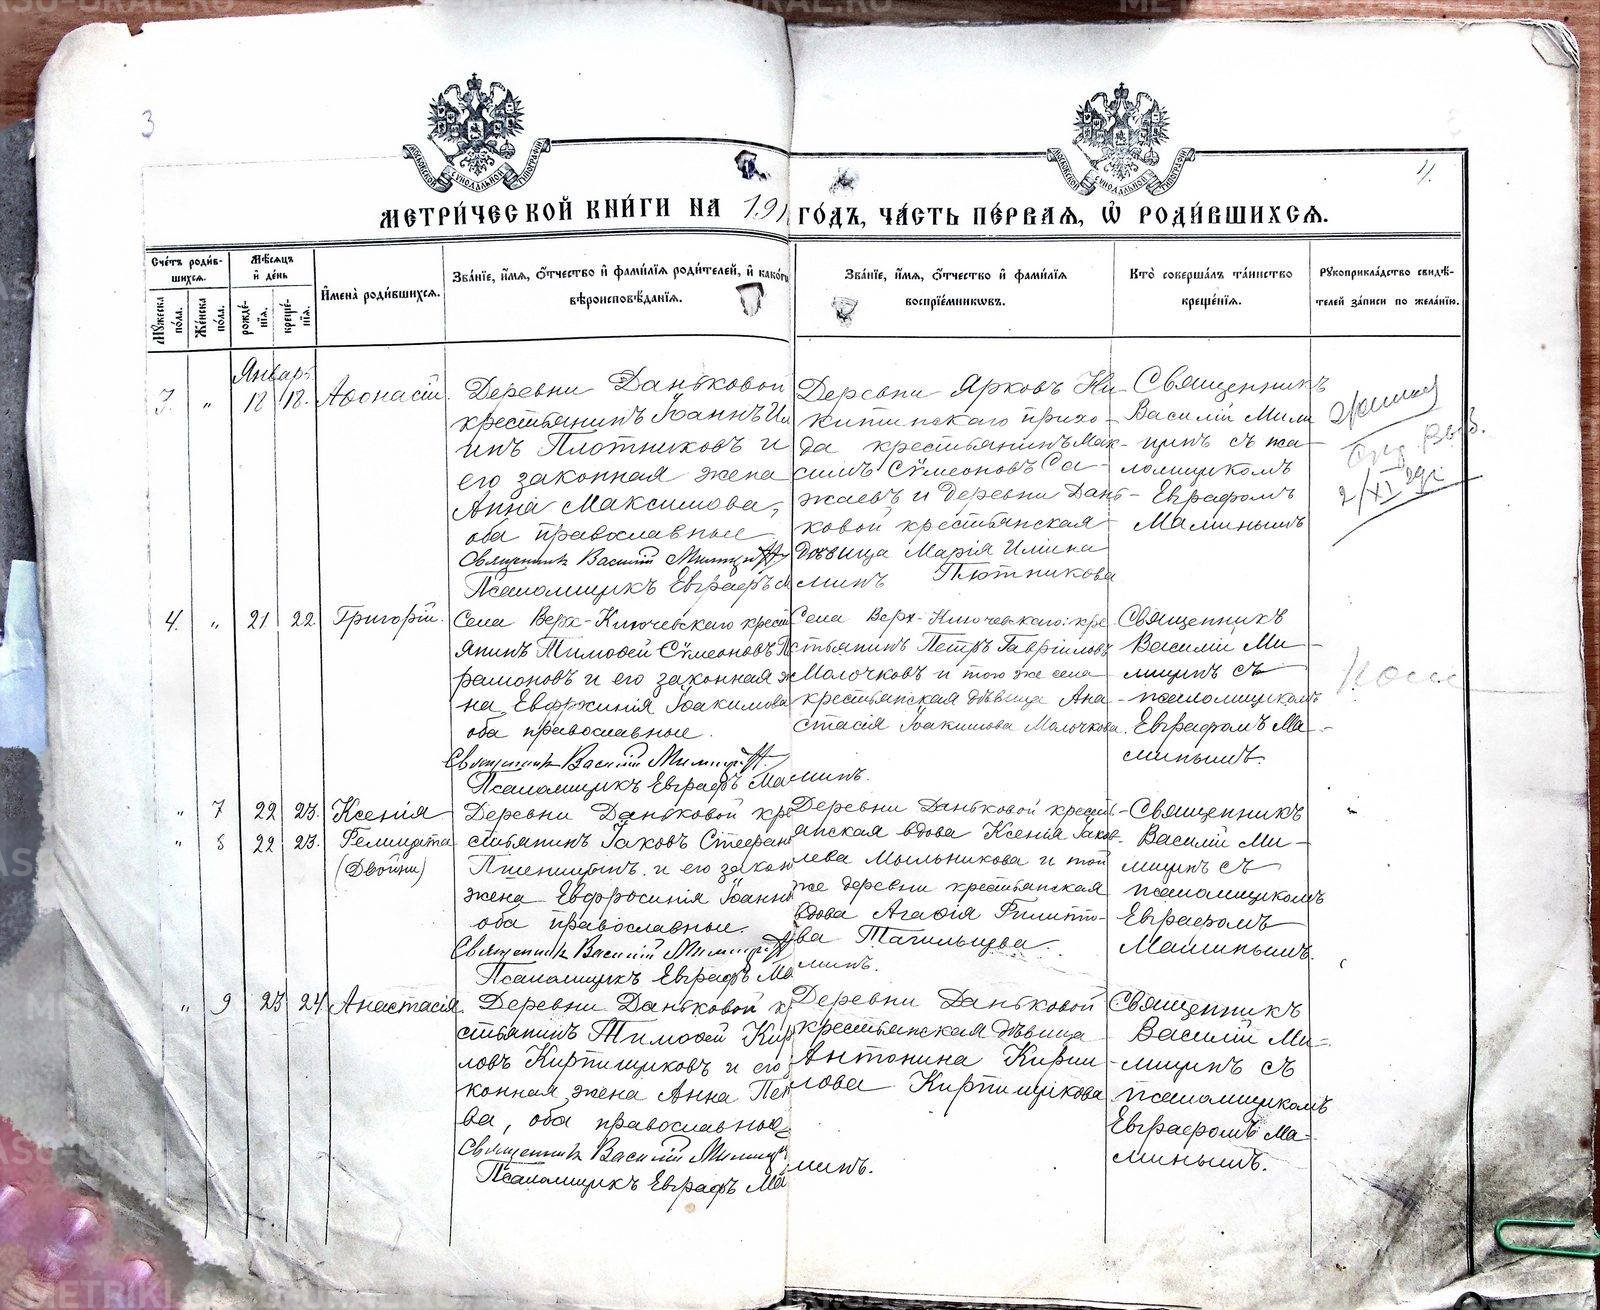 3
4.
МОСКОВСКОЙ СѴНОДАЛЬНОЙ ТИПОГРАФІИ
МОСКОВСКОЙ СѴНОДАЛЬНОЙ ТИПОГРАФІИ
МЕТРИ́ЧЕСКОЙ КНИ́ГИ НА 191 ГО́ДЪ, ЧА́СТЬ ПЕ́РВАЯ, Ѡ҆ РОДИ́ВШИХСѦ.
Сче́тъ роди́в-
шихсѧ.
Мꙋ́жеска по́ла.
Же́нска по́ла.
Мѣ́сѧцъ
и҆ де́нь
рожде́-
нїѧ.
креще́-
нїѧ.
И҆мена̀ роди́вшихсѧ.
Зва́нїе, и҆́мѧ, ѻ҆́тчество и҆ фами́лїѧ роди́телей, и҆ како́гѡ
вѣроисповѣ́данїѧ.
Зва́нїе, и҆́мѧ, ѻ҆́тчество и҆ фами́лїѧ
воспрїе́мникѡвъ.
Кто̀ соверша́лъ та́инство
креще́нїѧ.
Рꙋкоприкла́дство свидѣ́-
телей за́писи по жела́нїю.
Январь
3. " 18 18. Аѳонасій.
Деревни Даньковой
крестьянинъ Іоаннъ Ил
инъ Плотниковъ и
его законная жена
Анна Максимова,
оба православные
Священник Василій Милицин
Псаломщикъ Евграфъ Ма
Деревни Ярковъ Ни-
китинскаго прихо-
да крестьянинъ Мак-
симъ Сѵмеоновъ Са-
жаевъ и Деревни Дань-
ковой крестьянская
дѣвица Марія Ильина
минъ Плотникова
Священникъ
Василій Мили
цинъ съ пса
ломщикомъ
Евграфомъ
Маминымъ
2/XI 29г
4. " 21 22. Григорій.
Села Верх-Ключевскаго крест
янинъ Тимоѳей Сѵмеоновъ П
рамоновъ и его законная же
на Евфжинія Іоакимова
оба православные.
Священник Василій Милицин
Псаломщикъ Евграфъ Ма
Села Верх-Ключевскаго кре
стьянинъ Петръ Гавріиловъ
Молочковъ и того же села
крестьянская дѣвица Ана
стасія Іоакимова Молочкова.
минъ.
Священникъ
Василій Ми-
лицинъ съ
псаломщикомъ
Евграфомъ Ма-
минымъ.
" 7 22 23. Ксенія
" 8 22 23. Фелицата
(Двойни)
Деревни Даньковой кре
стьянинъ Іаковъ Стефан
Пшеницынъ и его закон
жена Евфросинія Іоанн
оба православные.
Священник Василій Милицин
Псаломщикъ Евграфъ Ма
Деревни Даньковой кресть-
янская вдова Ксенія Іаков-
лева Мыльникова и той
же деревни крестьянская
вдова Агафія Филиппо-
ва Тагильцева.
минъ.
Священникъ
Василій Ми-
лицинъ съ
псаломщикомъ
Евграфомъ
Маминымъ.
" 9 23 24 Анастасія.
Деревни Даньковой кр
стьянинъ Тимоѳей Кир
ловъ Кирпищиковъ и его
конная жена Анна Пет
ва, оба православные
Священник Василій Милицин
Псаломщикъ Евграфъ Ма
Деревни Даньковой
крестьянская дѣвица
Антонина Кирил
лова Кирпищикова
минъ.
Священникъ
Василій Ми-
лицинъ съ
псаломщикомъ
Евграфомъ Ма-
минымъ.